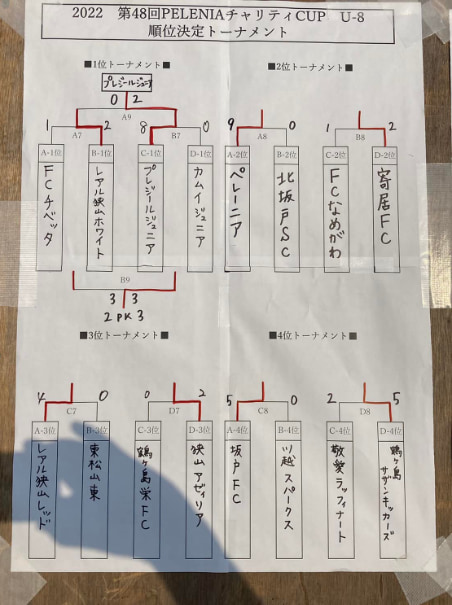 2022　第48回PELENIAチャリティCUP　U-8
順位決定トーナメント
■1位トーナメント■
プレジールジュニア
0 2
A9
1 2 8 0
A7 B7
A-1位 B-1位 C-1位 D-1位
FCチベッタ
レアル狭山ホワイト
プレジールジュニア
カムイジュニア
B9
3 3
2 PK 3
■2位トーナメント■
9 0 1 2
A8 B8
A-2位 B-2位 C-2位 D-2位
ペレーニア
北坂戸SC
FCなめがわ
寄居FC
■3位トーナメント■
4 0 0 2
C7 D7
A-3位 B-3位 C-3位 D-3位
レアル狭山レッド
東松山東
鶴ヶ島栄FC
狭山アゼィリア
■4位トーナメント■
5 0 2 5
C8 D8
A-4位 B-4位 C-4位 D-4位
坂戸FC
川越スパークス
敬愛ラッフィナート
鶴ヶ島
サザンキッカーズ